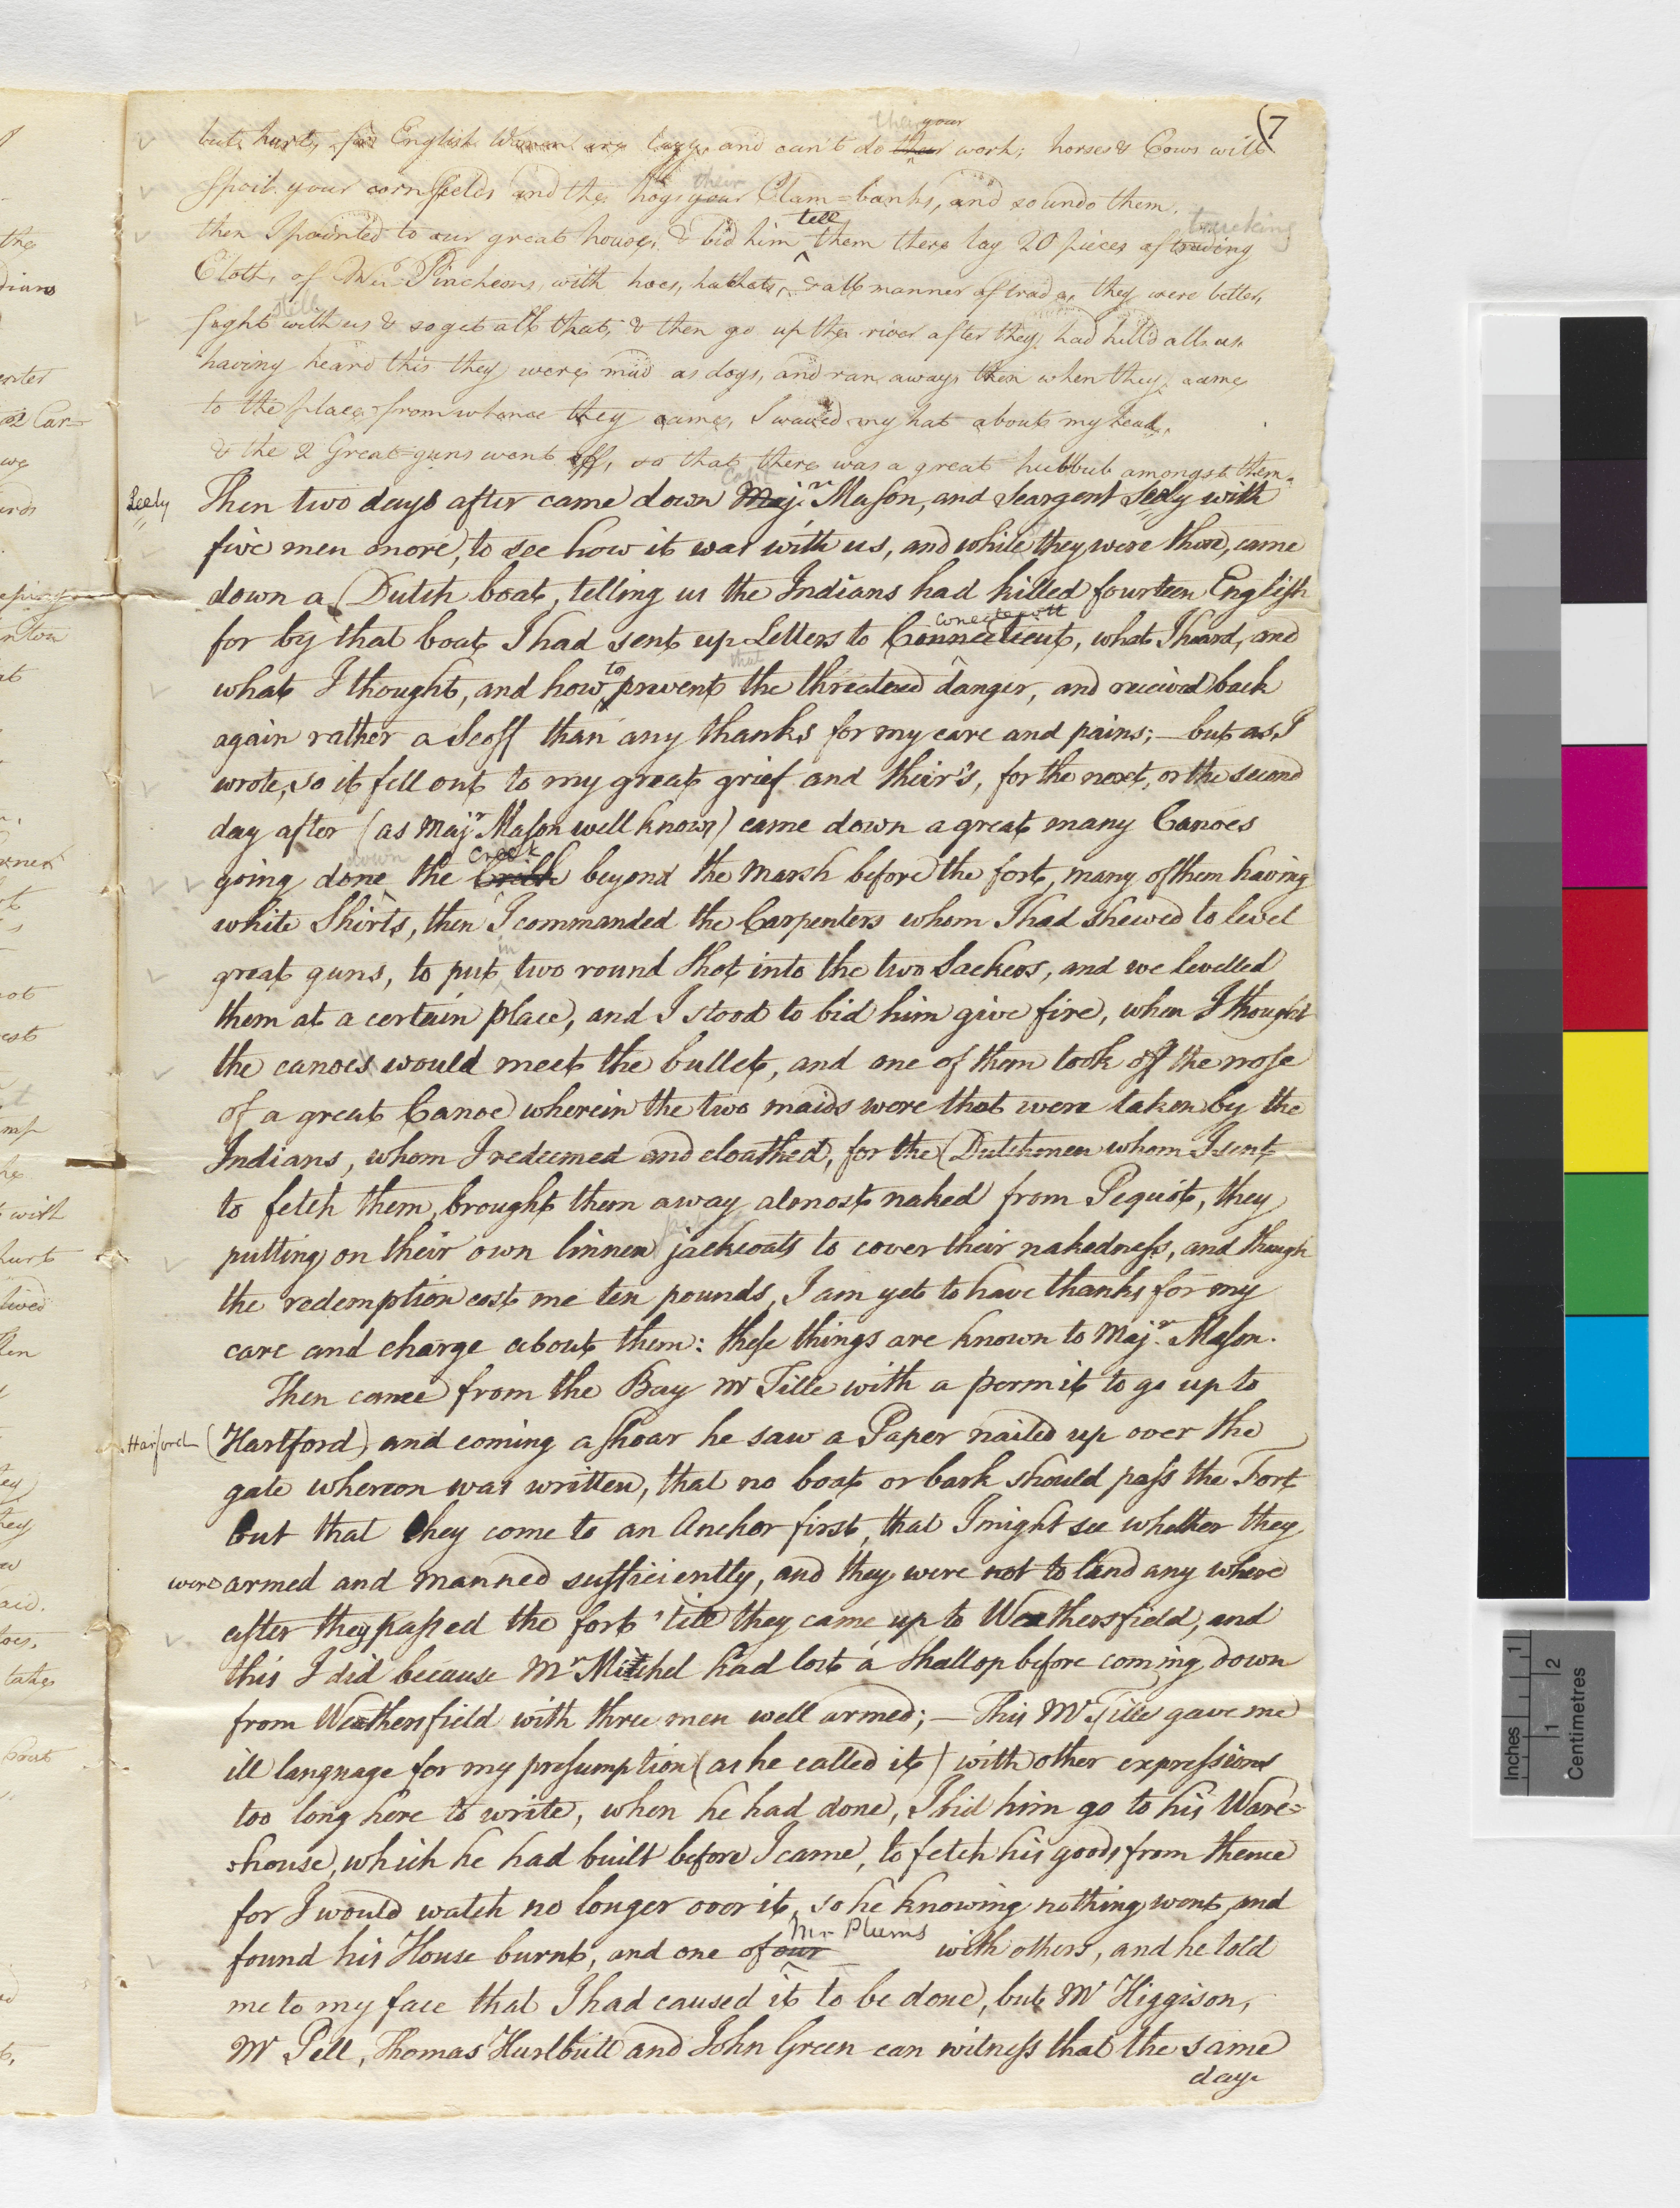 7
but hurt, for English Women are lazy, and can't do their your work; horses & Cows will
spoil your cornfields and the hogs your their Clam=banks, and so undo them.
then I pointed to our great house, & bid him tell them there lay 20 pieces of trading trucking
Cloth, of Mr. Pincheons, with hoes, hatchets, & all manner of trade, they were better
fight still with us & so get all that, & then go up the river after they had kill'd all us.
having heard this they were mad as dogs, and ran away, then when they came
to the place from whence they came, I waived my hat about my head,
& the 2 Great=guns went off, so that there was a great hubbub amongst them.
Seely Then two days after came down Majr. Capt Mason, and Seargent Seely with
five men more, to see how it was with us, and while they were there, came
down a Dutch boat, telling us the Indians had killed fourteen English
for by that boat I had sent up Letters to Connecticut, conectecott what I heard, and
what I thought, and how to prevent the that threatened danger, and received back
again rather a Scoff than any thanks for my care and pains; — but as I
wrote, so it fell out to my great grief and their's, for the next, or the second
day after (as Majr. Mason well knows) came down a great many Canoes
going done down the Creek beyond the Marsh before the fort, many of them having
white Shirts, then I commanded the Carpenters whom I had shewed to level
great guns, to put in two round Shot into the two Sackers, and we levelled
them at a certain place, and I stood to bid him give fire, when I thought
the canoes would meet the bullet, and one of them took off the nose
of a great Canoe wherein the two maids were that were taken by the
Indians, whom I redeemed and cloathed, for the Dutchmen whom I sent
to fetch them, brought them away almost naked from Pequit, they
putting on their own linnen jackcoats to cover their nakedness, and though
the redemption cost me ten pounds, I am yet to have thanks for my
care and charge about them: these things are known to Majr. Mason.
Then came from the Bay Mr Tille with a permit to go up to
Harford (Hartford) and coming ashoar he saw a Paper nailed up over the
gate whereon was written, that no boat or bark should pass the Fort
but that they come to an Anchor first, that I might see whether they
were armed and manned sufficiently, and they were not to land any where
after they passed the fort 'till they came up to Weathersfield, and
this I did because Mr Mitchel had lost a Shallop before coming down
from Weathersfield with three men well armed; — This Mr Tille gave me
ill language for my presumption (as he called it) with other expressions
too long here to write, when he had done, I bid him go to his Ware=
=house, which he had built before I came, to fetch his goods from thence
for I would watch no longer over it, so he knowing nothing went and
found his House burnt, and one of our Mr Plums with others, and he told
me to my face that I had caused it to be done, but Mr Higgison,
Mr Pell, Thomas Hurlbutt and John Green can witness that the same
day
Inches 1
1 2 Centimetres